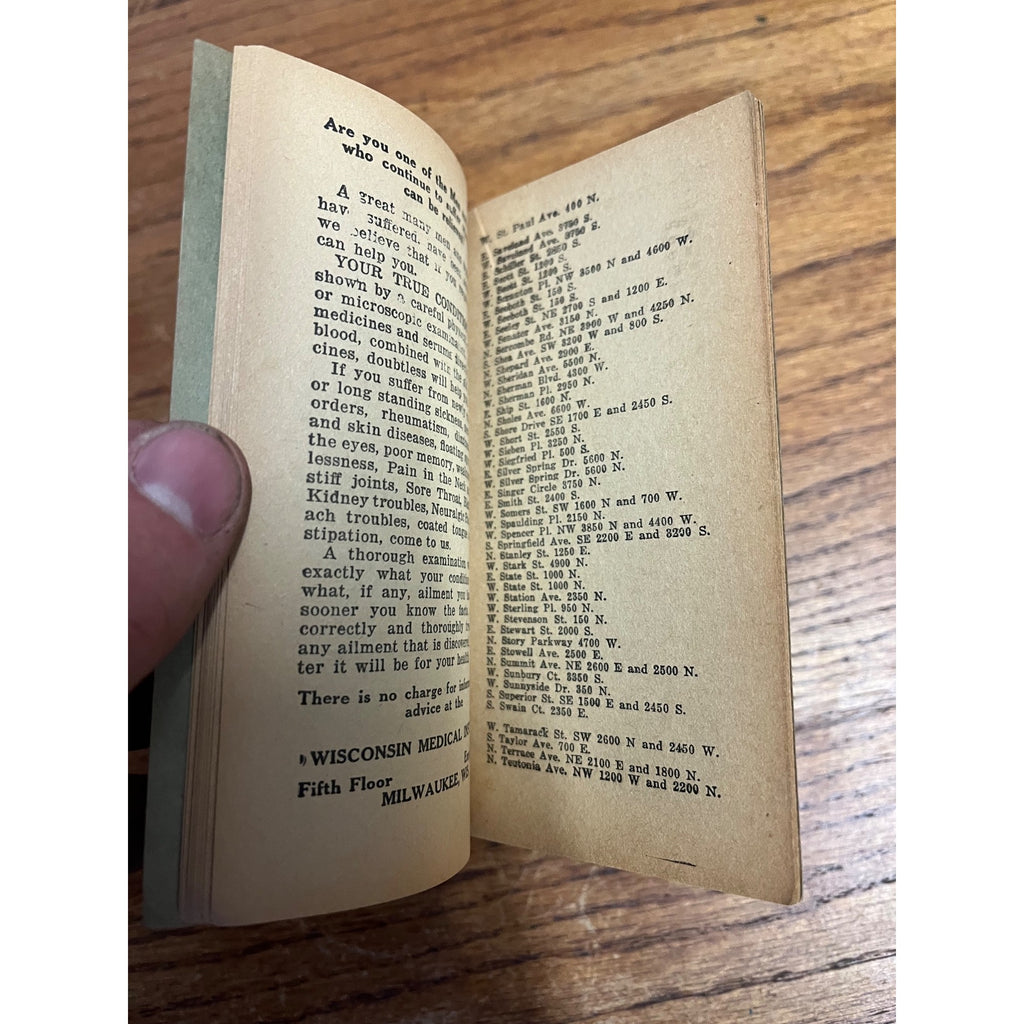 Are you one of the
who continue to
can be
A great many men
have suffered, have
we believe that if you
can help you.
YOUR TRUE
shown by a careful
or microscopic
medicines and serums
blood, combined with the
cines, doubtless will help
If you suffer from
or long standing sickness
orders, rheumatism,
and skin diseases, floating
the eyes, poor memory,
lessness, Pain in the
stiff joints, Sore Throat,
Kidney troubles,
ach troubles, coated tongue
stipation, come to us.
A thorough examination
exactly what your
what, if any, ailment you
sooner you know the
correctly and thoroughly
any ailment that is
ter it will be for your
There is no charge for
advice at the
WISCONSIN MEDICAL
Fifth Floor
MILWAUKEE,
W. St. Paul Ave. 400 N.
E. Saveland Ave. 3700 S.
W. Saveland Ave. 3750 S.
E. Schiller St. 2650 S.
E. Scott St. 1300 S.
W. Scott St. 1200 S.
W. Scranton Pl. NW 3500 N and 4600 W.
E. Seeboth St. 150 S.
W. Seeboth St. 150 S.
E. Seeley St. NE 2700 S and 1200 E.
W. Senator Ave. 3150 N.
N. Sercombe Rd. NE 3900 W and 4250 N.
S. Shea Ave. SW 3200 W and 800 S.
N. Shepard Ave. 2900 E.
W. Sheridan Ave. 5500 N.
N. Sherman Blvd. 4300 W.
W. Sherman Pl. 2950 N.
E. Ship St. 1600 N.
N. Sholes Ave. 6600 W.
S. Shore Drive SE 1700 E and 2450 S.
W. Short St. 2550 S.
W. Sieben Pl. 3250 N.
W. Siegfried Pl. 500 S.
E. Silver Spring Dr. 5600 N.
W. Silver Spring Dr. 5600 N.
E. Singer Circle 3750 N.
E. Smith St. 2400 S.
W. Somers St. SW 1600 N and 700 W.
W. Spaulding Pl. 2150 N.
W. Spencer Pl. NW 3850 N and 4400 W.
S. Springfield Ave. SE 2200 E and 3200 S.
N. Stanley St. 1250 E.
W. Stark St. 4900 N.
E. State St. 1000 N.
W. State St. 1000 N.
W. Station Ave. 2350 N.
W. Sterling Pl. 950 N.
W. Stevenson St. 150 N.
E. Stewart St. 2000 S.
N. Story Parkway 4700 W.
E. Stowell Ave. 2500 E.
N. Summit Ave. NE 2600 E and 2500 N.
W. Sunbury Ct. 3350 S.
W. Sunnyside Dr. 350 N.
S. Superior St. SE 1500 E and 2450 S.
S. Swain Ct. 2350 E.
W. Tamarack St. SW 2600 N and 2450 W.
S. Taylor Ave. 700 E.
N. Terrace Ave. NE 2100 E and 1800 N.
N. Teutonia Ave. NW 1200 W and 2200 N.